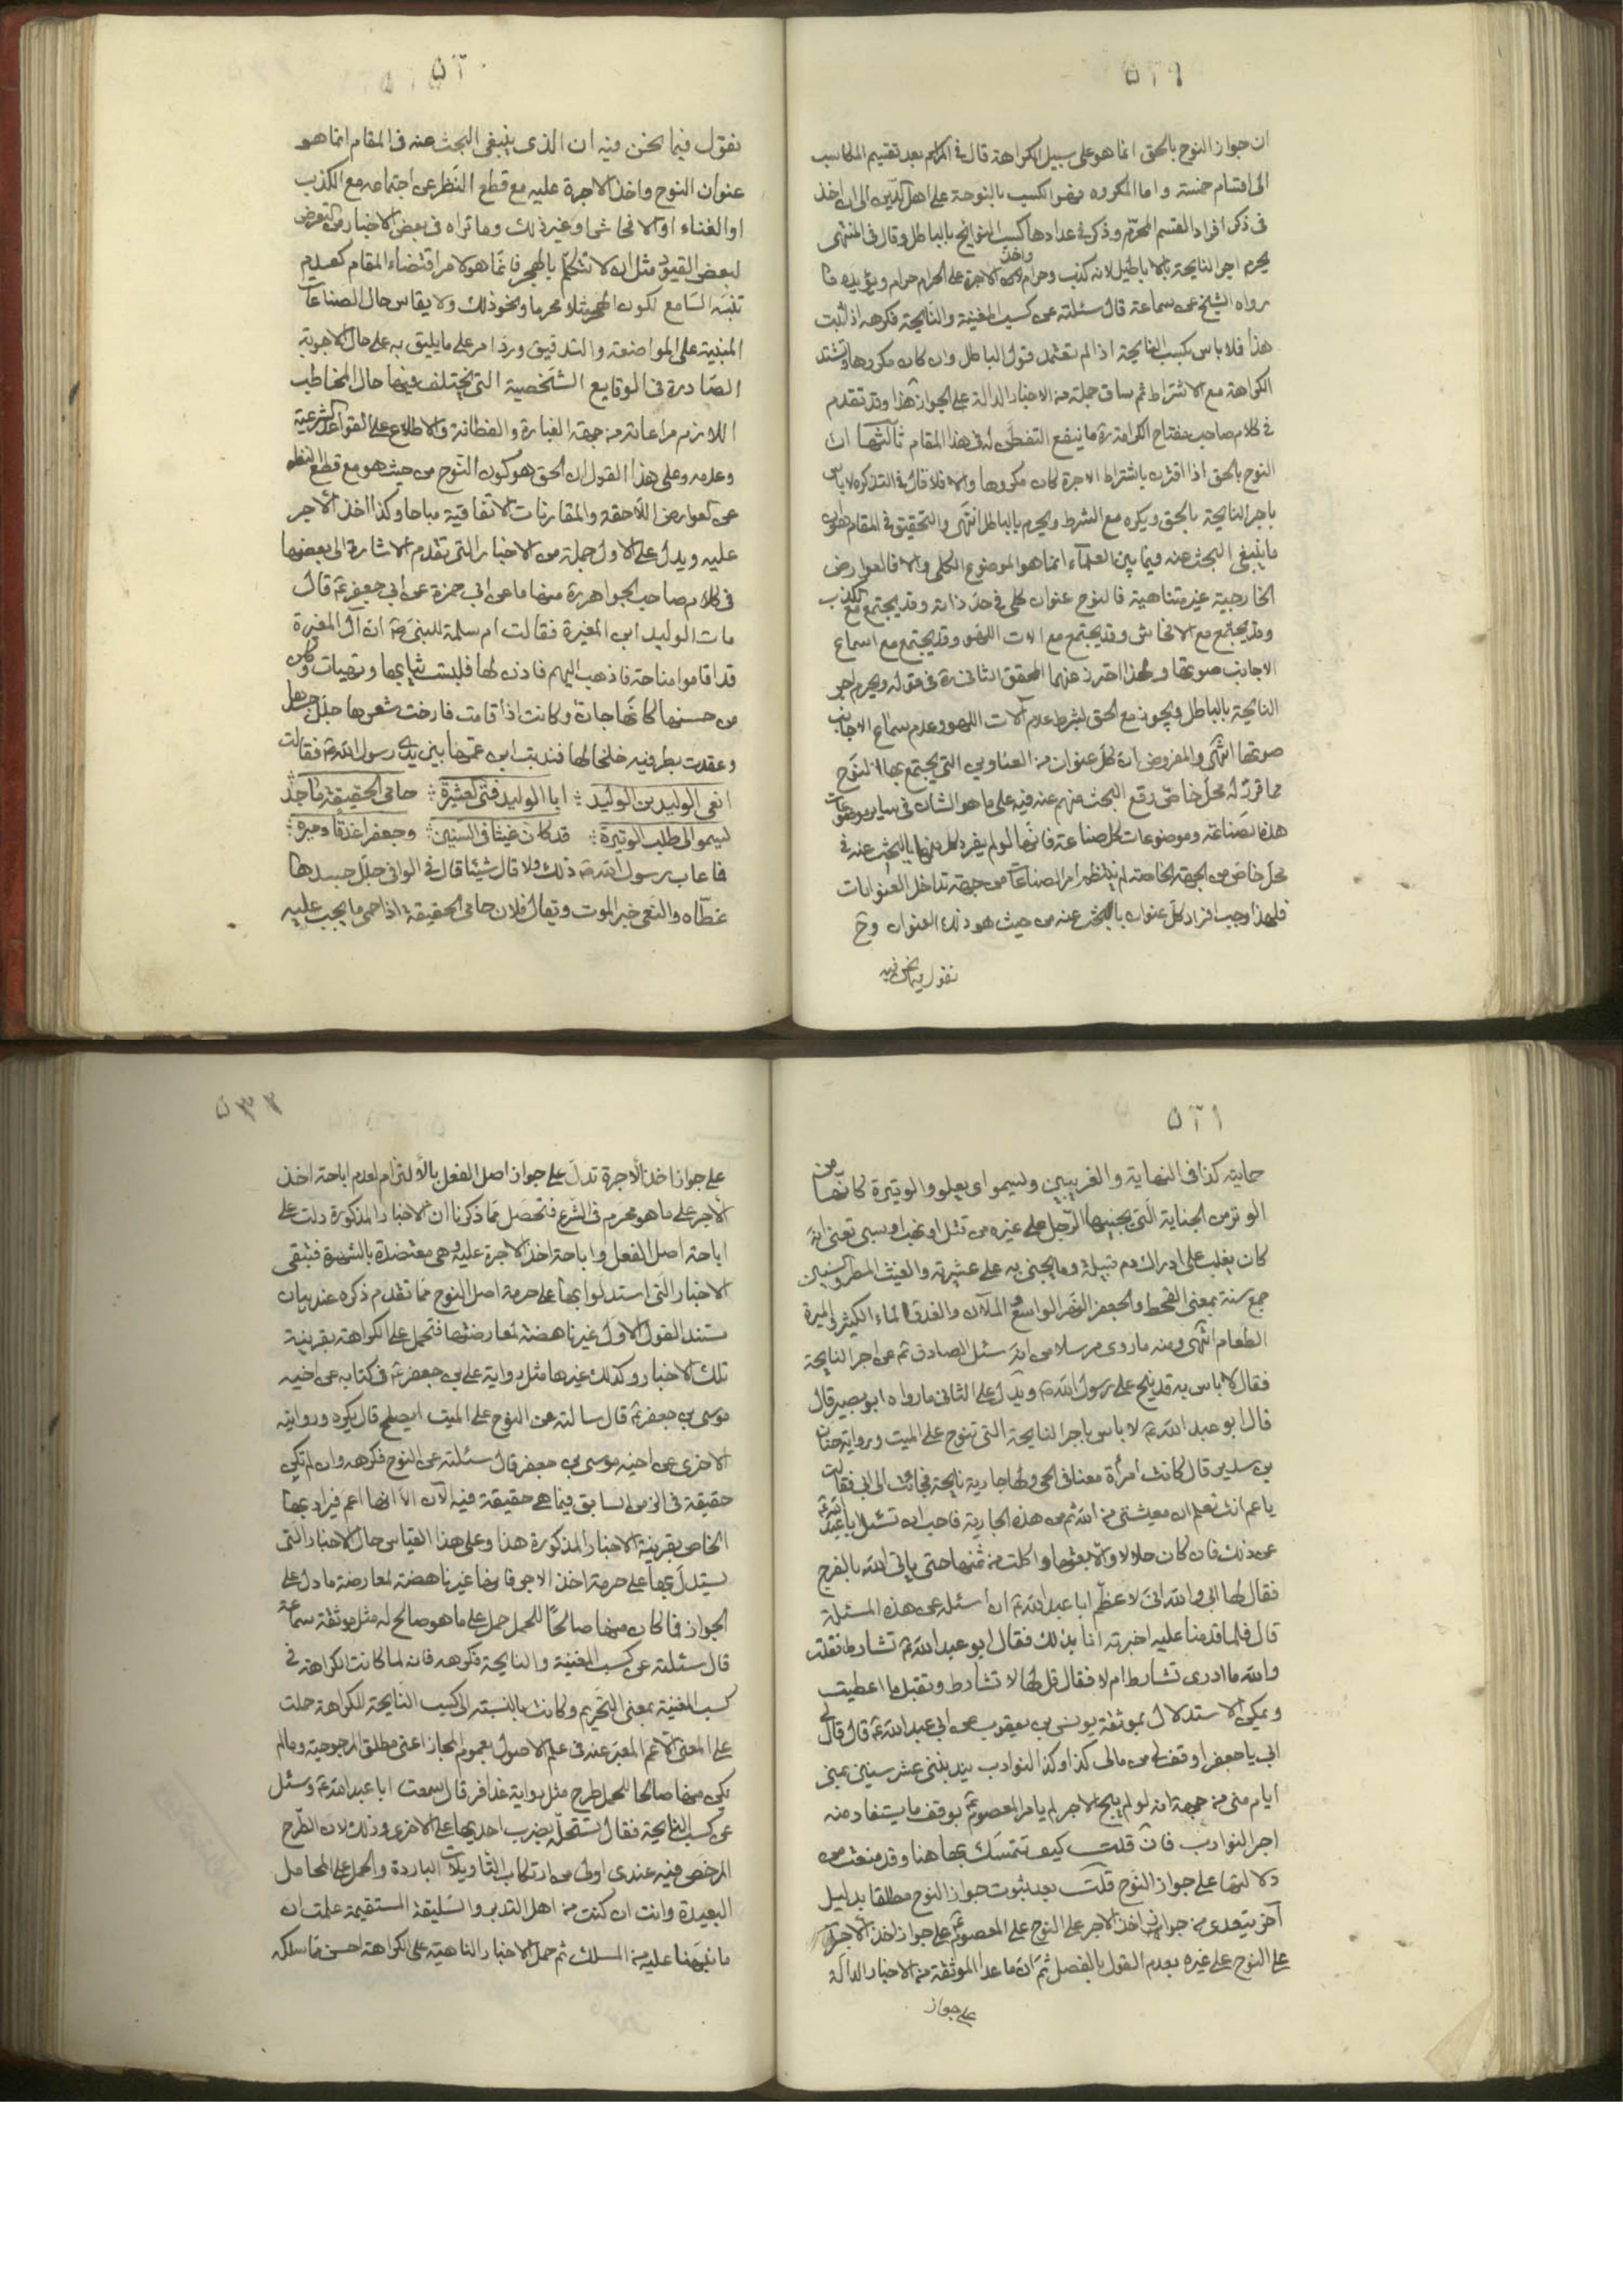 ٥٢٩
ان جواز النوح بالحق انما هو على سبيل الكراهة قال فى المراسم بعد تقسيم المكاسب
الى اقسام خمسة و اما المكروه فهو الكسب بالنوحة على اهل الدين الى ان اخذ
فى ذكر افراد القسم المحرّم و ذكر فى عدادها كسب النوايح بالباطل و قال فى المنتهى
يحرم اجر النايحة بالاباطيل لانه كذب و حرام و اخذ الاجرة على الحرام حرام و يؤيده ما
رواه الشيخ عن سماعة قال سئلته عن كسب المغنية و النايحة فكرهه اذا ثبت
هذا فلا باس بكسب النايحة اذا لم تعتمد قول الباطل و ان كان مكروها و تشتد
الكراهة مع الاشتراط ثم ساق جملة من الاخبار الدالة على الجواز هذا و قد تقدم
فى كلام صاحب مفتاح الكرامة ره ما ينفع التفطن له فى هذا المقام ثالثها ان
النوح بالحق اذا اقترن باشتراط الاجرة كان مكروها و الا فلا قال فى التذكره لا باس
باجر النايحة بالحق و يكره مع الشرط و يحرم بالباطل انتهى و التحقيق فى المقام هو ان
ما ينبغى البحث عنه فيما بين العلمآء انما هو الموضوع الكلى و الا فالعوارض
الخارجية غير متناهية فالنوح عنوان كلى فى حدّ ذاته و قد يجتمع مع الكذب
و قد يجتمع مع الافحاش و قد يجتمع مع الات اللهو و قد يجتمع مع اسماع
الاجانب صوتها و لهذا احترز عنهما المحقق الثانى ره فى قوله و يحرم اجر
النايحة بالباطل و يجوز مع الحق بشرط عدم آلات اللهو و عدم سماع الاجانب
صوتها انتهى و المفروض ان كل عنوان من العناوين التى يجتمع بها النوح
مما قرّر له محلّ خاصّ وقع البحث منهم عنه فيه على ما هو الشان فى ساير موضوعات
هذه الصّناعة و موضوعات كل صناعة فانها لو لم يفرد كل منها بالبحث عنه فى
محل خاص من الجهة الخاصة لم ينتظم امر الصناعات من جهة تداخل العنوانات
فلهذا وجب افراد كل عنوان بالبحث عنه من حيث هو ذلك العنوان و ح
نقول فيما نحن فيه
٥٣٠
نقول فيما نحن فيه ان الذى ينبغى البحث عنه فى المقام انما هو
عنوان النوح و اخذ الاجرة عليه مع قطع النّظر عن اجتماعه مع الكذب
او الغناء او الافحاش او غير ذلك و ما تراه فى بعض الاخبار من التعرض
لبعض القيود مثل ان لا تتكلم بالهجر فانما هو لامر اقتضاه المقام كعدم
تنبّه السّامع لكون الهجر مثلا محرما و نحو ذلك و لا يقاس حال الصناعات
المبنية على المواضعة و التدقيق و رد امر على ما يليق به على حال الاجوبة
الصّادرة فى الوقايع الشّخصية التى يختلف فيها حال المخاطب
اللازم مراعاته من جهة الغباوة و الفطانة و الاطلاع على القواعد الشرعية
و عدمه و على هذا القول ان الحق هو كون النّوح من حيث هو مع قطع النظر
عن العوارض اللّاحقة و المقارنات الاتفاقية مباحا و كذا اخذ الاجر
عليه و يدل على الاول جملة من الاخبار التى تقدم الاشارة الى بعضها
فى كلام صاحب الجواهر ره منها ما عن ابى حمزة عن ابى جعفر ع قال
مات الوليد ابن المغيرة فقالت ام سلمة للنبى ص ان آل المغيرة
قد اقاموا مناحة فاذهب اليهم فاذن لها فلبست ثيابها و تهيات و كان
من حسنها كانّها جانّ و كانت اذا قامت فارخت شعرها جلّل جسدها
و عقدت بطرفيه خلخالها فندبت ابن عمّها بين يدى رسول اللّه ص فقالت
انعى الوليد بن الوليد : ابا الوليد فتى العشيرة : حامى الحقيقة ماجدٌ
يسمو الى طلب الوتيرة : قد كان غيثا فى السّنين : و جعفرا غدقا و ميره :
فما عاب رسول اللّه ص ذلك و لا قال شيئا قال فى الوافى جلّل جسدها
غطّاه و النعى خبر الموت و يقال فلان حامى الحقيقة اذا حمى ما يجب عليه
٥٣١
حمايته كذا فى النهاية و الغريبين و يسمو اى يعلو و الوتيرة كانها من
الوتر من الجناية الّتى يجنيها الرّجل على غيره من قتل او نهب او سبى تعنى انّه
كان يغلب على ادراك دم قبيلة و ما يجنى به على عشيرته و الغيث المطر و السنين
جمع سنة بمعنى القحط و الجعفر النهر الواسع و الملآن و الغدق الماء الكثير و الميرة
الطّعام انتهى و منه ما روى مرسلا من انه سئل الصادق ع عن اجر النايحة
فقال لا باس به قد نيح على رسول اللّه ص و يدل على الثانى ما رواه ابو بصير قال
قال ابو عبد اللّه ع لا باس باجر النايحة التى تنوح على الميت و رواية حنان
بن سدير قال كانت امرأة معنا فى الحى و لها جارية نايحة فجائت الى ابى فقالت
يا عم انت تعلم ان معيشتى من اللّه ثم من هذه الجارية فاحب ان تسئل ابا عبد اللّه ع
عن ذلك فان كان حلالا و الّا بعتها و اكلت من ثمنها حتى ياتى اللّه بالفرج
فقال لها ابى و اللّه انى لاعظّم ابا عبد اللّه ع ان أسئله عن هذه المسئلة
قال فلما قدمنا عليه اخبرته انا بذلك فقال ابو عبد اللّه ع تشارط فقلت
و اللّه ما ادرى تشارط ام لا فقال قل لها لا تشارط و تقبل ما اعطيت
و يمكن الاستدلال بموثقة يونس بن يعقوب عن ابى عبد اللّه ع قال قال لى
ابى يا جعفر اوقف لى من مالى كذا و كذا لنوادب يندبننى عشر سنين بمنى
ايام منى من جهة انه لو لم يبح الاجر لم يامر المعصوم ع بوقف ما يستفاد منه
اجر النوادب فان قلت كيف تتمسّك بها هنا و قد منعت من
دلالتها على جواز النّوح قلت بعد ثبوت جواز النوح مطلقا بدليل
آخر يتعدى من جواز اخذ الاجر على النوح على المعصوم ع على جواز اخذ الاجرة
على النوح على غيره بعدم القول بالفصل ثم ان ما عدا الموثقة من الاخبار الدالة
على جواز
٥٣٢
على جواز اخذ الاجرة تدلّ على جواز اصل الفعل بالالتزام لعدم اباحة اخذ
الاجر على ما هو محرم فى الشرع فتحصل مما ذكرنا ان الاخبار المذكورة دلت على
اباحة اصل الفعل و اباحة اخذ الاجرة عليه و هى معتضدة بالشهرة فتبقى
الاخبار التى استدلوا بها على حرمة اصل النوح مما تقدم ذكره عند بيان
مستند القول الاول غير ناهضة لمعارضتها فتحمل على الكراهة بقرينة
تلك الاخبار و كذلك غيرها مثل رواية على بن جعفر ع فى كتابه عن اخيه
موسى بن جعفر ع قال سالته عن النوح على الميت ايصلح قال يكره و روايته
الاخرى عن اخيه موسى بن جعفر قال سئلته عن النوح فكرهه و ان لم تكن
حقيقة فى الزمن السابق فيما هى حقيقة فيه الآن الا انها اعم فيراد بها
الخاص بقرينة الاخبار المذكورة هذا و على هذا القياس حال الاخبار التى
يستدلّ بها على حرمة اخذ الاجر فانها غير ناهضة لمعارضة ما دل على
الجواز فما كان منها صالحًا للحمل حمل على ما هو صالح له مثل موثقة سماعة
قال سئلته عن كسب المغنية و النايحة فكرهه فانه لما كانت الكراهة فى
كسب المغنية بمعنى التّحريم و كانت بالنسبة الى كسب النّايحة للكراهة حملت
على المعنى الاعم المعبر عنه فى علم الاصول بعموم المجاز اعنى مطلق المرجوحية و ما لم
يكن منها صالحا للحمل طرح مثل رواية عذافر قال سمعت ابا عبد اللّه ع و سئل
عن كسب النايحة فقال تستحلّه بضرب احدى يديها على الاخرى و ذلك لان الطّرح
المرخص فيه عندى اولى من ارتكاب التّاويلات الباردة و الحمل على المحامل
البعيدة و انت ان كنت من اهل التدبر و السّليقة المستقيمة علمت ان
ما نبّهنا عليه من المسلك ثم حمل الاخبار الناهية على الكراهة احسن مما سلكه